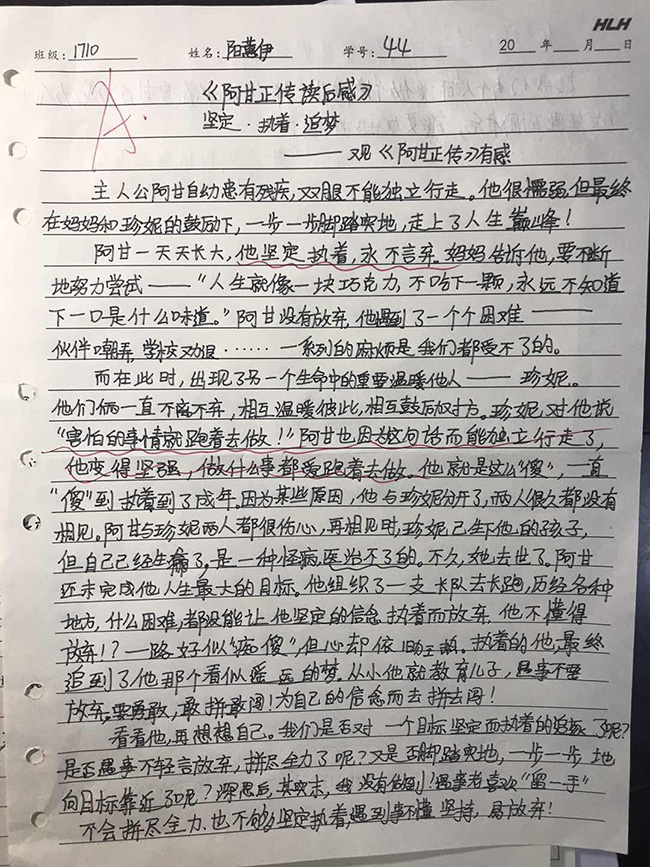 HLH
班级: 1710 姓名: 阳蕙伊 学号: 44 20 年 月 日
A.
《阿甘正传读后感》
坚定·执着·追梦
——观《阿甘正传》有感
主人公阿甘自幼患有残疾,双腿不能独立行走。他很懦弱,但最终
在妈妈和珍妮的鼓励下,一步一步脚踏实地,走上了人生巅峰!
阿甘一天天长大,他坚定执着,永不言弃。妈妈告诉他,要不断
地努力尝试——“人生就像一块巧克力,不吃下一颗,永远不知道
下一口是什么味道。”阿甘没有放弃,他遇到了一个个困难——
伙伴嘲弄,学校劝退……一系列的麻烦是我们都受不了的。
而在此时,出现了另一个生命中的重要温暖他人——珍妮。
他们俩一直不离不弃,相互温暖彼此,相互鼓励对方。珍妮对他说
“害怕的事情就跑着去做!”阿甘也因为这句话而能独立行走了,
他变得坚强,做什么事都爱跑着去做。他就是这么“傻”,一直
“傻”到执着到了成年。因为某些原因,他与珍妮分开了,两人很久都没有
相见。阿甘与珍妮两人都很伤心,再相见时,珍妮已生下他的孩子,
但自己已经生病了,是一种怪病,医治不了的。不久,她去世了。阿甘
还未完成他人生最大的目标。他组织了一支长队去长跑,历经各种
地方,什么困难,都没能让他坚定的信念执着而放弃,他不懂得
放弃!?一路好似“痴傻”,但心却依旧 执着的他,最终
追到了他那个看似遥远的梦。从小他就教育儿子,遇事不要
放弃,要勇敢,敢拼敢闯!为自己的信念而去拼去闯!
看看他,再想想自己。我们是否对一个目标坚定而执着的追逐了呢?
是否遇事不轻言放弃,拼尽全力了呢?又是否脚踏实地,一步一步地
向目标靠近了呢?深思后,其实未,我没有做到!遇事老喜欢“留一手”
不会拼尽全力,也不够坚定执着,遇到事不懂坚持,易放弃!